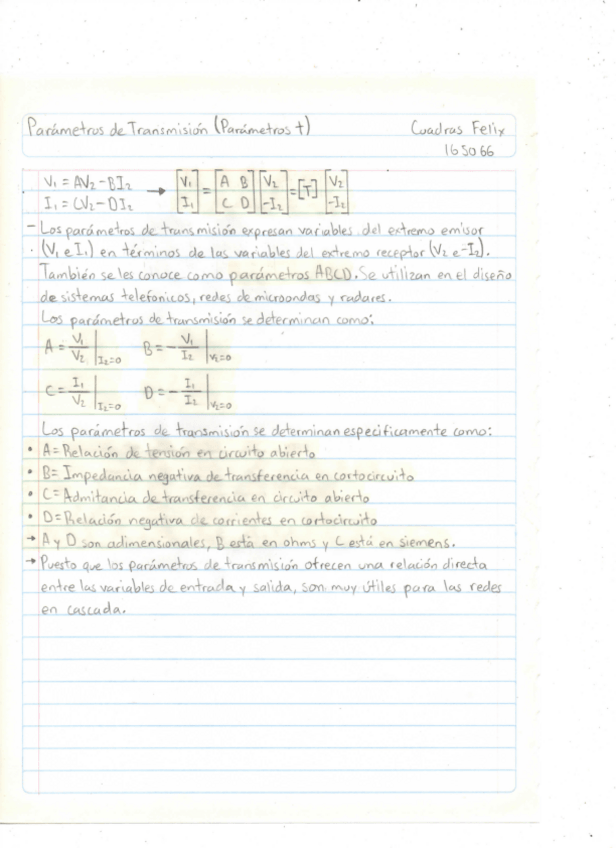 Parámetros de Transmisión (Parámetros t) Cuadras Felix
165066
V₁ = AV₂ - BI₂
I₁ = CV₂ - DI₂ → [V₁ I₁] = [A B C D] [V₂ -I₂] = [T] [V₂ -I₂]
- Los parámetros de transmisión expresan variables del extremo emisor
(V₁ e I₁) en términos de las variables del extremo receptor (V₂ e -I₂).
También se les conoce como parámetros ABCD. Se utilizan en el diseño
de sistemas telefonicos, redes de microondas y radares.
Los parámetros de transmisión se determinan como:
A = V₁/V₂ |I₂=0 B = - V₁/I₂ |V₂=0
C = I₁/V₂ |I₂=0 D = - I₁/I₂ |V₂=0
Los parámetros de transmisión se determinan especificamente como:
• A = Relación de tensión en circuito abierto
• B = Impedancia negativa de transferencia en cortocircuito
• C = Admitancia de transferencia en circuito abierto
• D = Relación negativa de corrientes en cortocircuito
→ A y D son adimensionales, B está en ohms y C está en siemens.
→ Puesto que los parámetros de transmisión ofrecen una relación directa
entre las variables de entrada y salida, son muy útiles para las redes
en cascada.